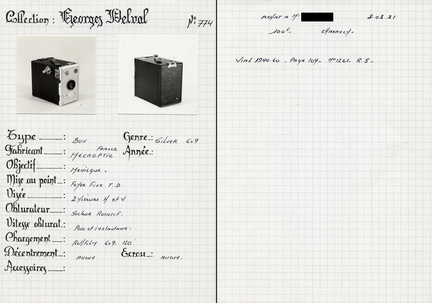 Collection : Georges Delval N° 774
Type : Box Genre : Silver 6x9
Fabricant : France Mecaoptic Année :
Objectif : Menisque.
Mise au point : Foyer Fixe T.D.
Visée : 2 Viseurs H et V.
Obturateur : Secteur Rotatif.
Vitesse obturat : Pose et instantané.
Chargement : Rollfilm 6x9. 120
Décentrement : aucun Ecrou : aucun.
Accessoires :
Acheté a M
2.02.81
100F. Charency.
Vial 1940 60. Page 104. N° 1261. R. 5.